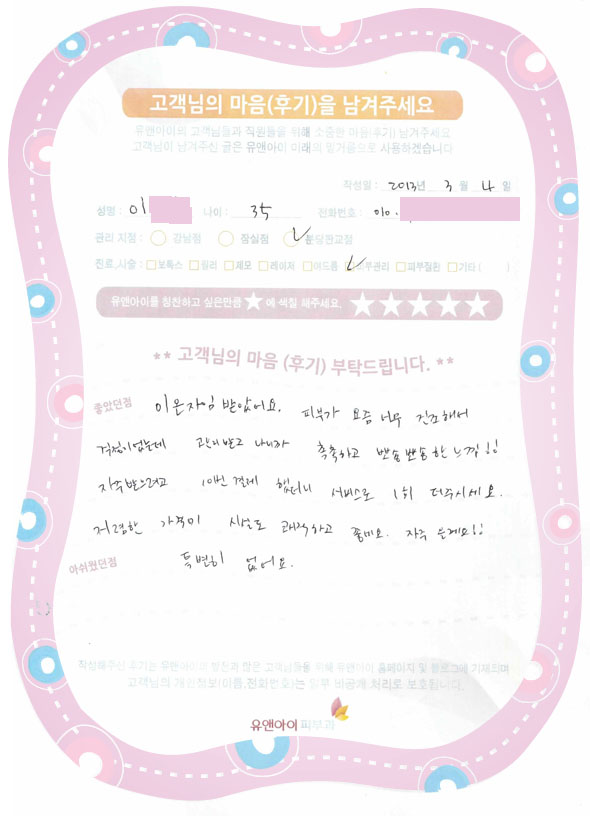 고객님의 마음(후기)을 남겨주세요
유앤아이의 고객님들과 직원들을 위해 소중한 마음(후기) 남겨주세요
고객님이 남겨주신 글은 유앤아이 미래의 밑거름으로 사용하겠습니다
작성일 : 2013년 3 월 4 일
성명 : 이 나이 : 35 전화번호 : 010.
관리 지점 : 강남점 잠실점 분당판교점
진료,시술 : 보톡스 필러 제모 레이저 여드름 피부관리 피부질환 기타 ( )
유앤아이를 칭찬하고 싶은만큼 ★ 에 색칠 해주세요. ★★★★★
** 고객님의 마음 (후기) 부탁드립니다. **
좋았던점 이온자임 받았어요. 피부가 요즘 너무 건조해서
걱정이었는데 관리받고 나니까 촉촉하고 뽀송뽀송한 느낌!!
지속받으려고 10번 결제 했더니 서비스로 1회 더주시네요.
저렴한 가격에 시설도 쾌적하고 좋네요. 자주 올게요!!
아쉬웠던점 특별히 없어요.
작성해주신 후기는 유앤아이의 발전과 많은 고객님들을 위해 유앤아이 홈페이지 및 블로그에 기재되며
고객님의 개인정보(이름,전화번호)는 일부 비공개 처리로 보호됩니다.
유앤아이 피부과